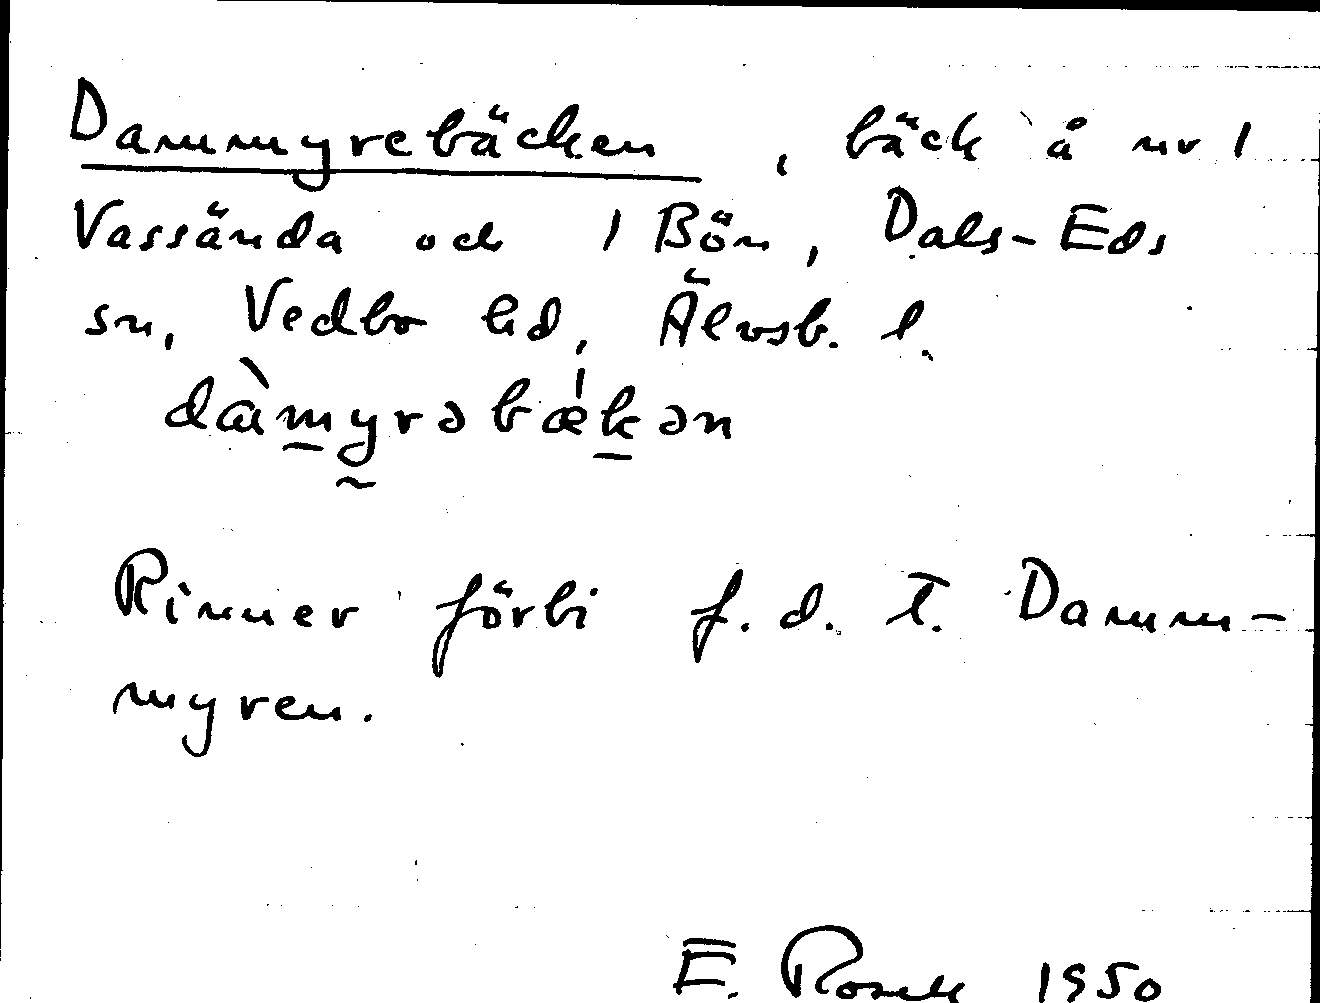 Dammyrebäcken, bäck å nr 1
Vassända och 1 Bön, Dals-Eds
sn, Vedbo hd, Älvsb. l.
dàmyrəbǽkən
Rinner förbi f.d. T. Damm-
myren.
E. Rosell 1950